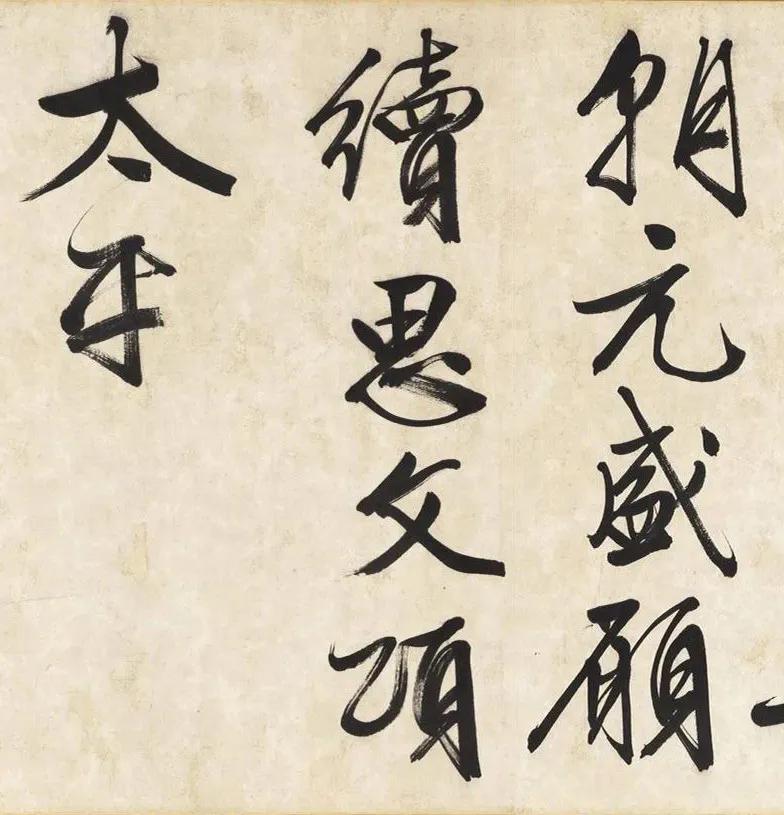 朝元盛願
續思文頌
太平